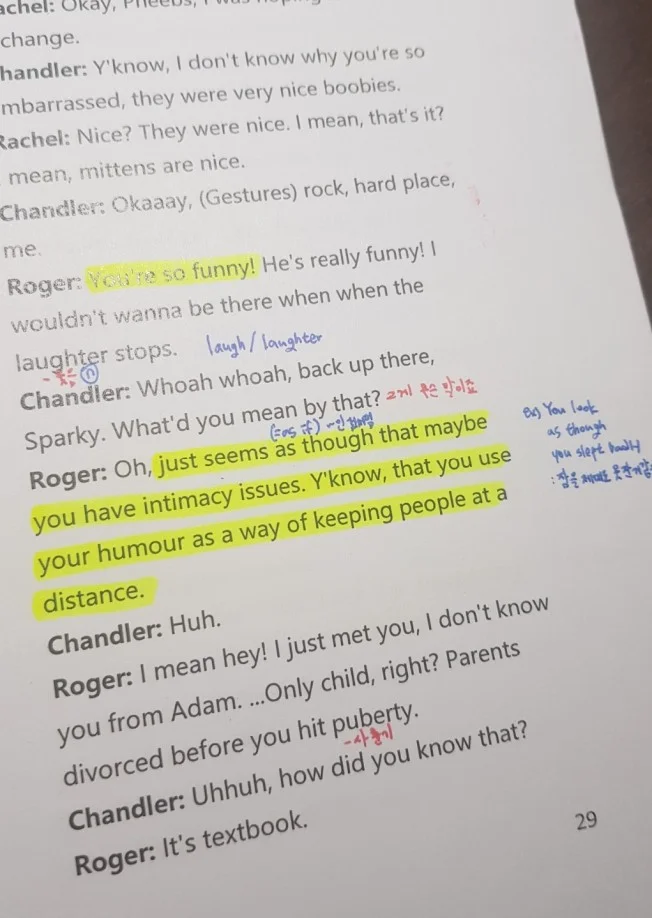 achel: Okay, Pheebs, I was hoping
change.
handler: Y'know, I don't know why you're so
mbarrassed, they were very nice boobies.
Rachel: Nice? They were nice. I mean, that's it?
mean, mittens are nice.
Chandler: Okaaay, (Gestures) rock, hard place,
me.
Roger: You're so funny! He's really funny! I
wouldn't wanna be there when when the
laughter stops. laugh / laughter
- 웃음 n
Chandler: Whoah whoah, back up there,
Sparky. What'd you mean by that? 그게 무슨 말이죠
Roger: Oh, just seems as though that maybe
you have intimacy issues. Y'know, that you use
your humour as a way of keeping people at a
distance.
ex) You look
as though
you slept badly
Chandler: Huh.
Roger: I mean hey! I just met you, I don't know
you from Adam. ...Only child, right? Parents
divorced before you hit puberty.
- 사춘기
Chandler: Uhhuh, how did you know that?
Roger: It's textbook.
29